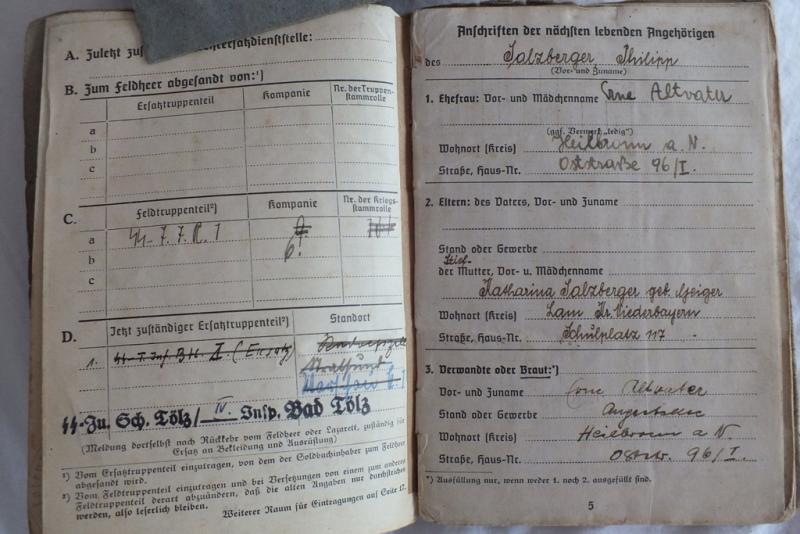 A. Zuletzt zuständige Wehrersatzdienststelle:
B. Zum Feldheer abgesandt von:¹)
Ersatztruppenteil
Kompanie
Nr. der Truppenstammrolle
a
b
c
C.
Feldtruppenteil²)
Kompanie
Nr. der Kriegsstammrolle
a
b
6.
c
D.
Jetzt zuständiger Ersatztruppenteil²)
Standort
1.
Stralsund
SS-Ju. Sch. Tölz/ IV. Insp. Bad Tölz
(Meldung dortselbst nach Rückkehr vom Feldheer oder Lazarett, zuständig für
Ersatz an Bekleidung und Ausrüstung)
¹) Vom Ersatztruppenteil einzutragen, von dem der Soldbuchinhaber zum Feldheer
abgesandt wird.
²) Vom Feldtruppenteil einzutragen und bei Versetzungen von einem zum anderen
Feldtruppenteil derart abzuändern, daß die alten Angaben nur durchstrichen
werden, also leserlich bleiben.
Weiterer Raum für Eintragungen auf Seite 17.
Anschriften der nächsten lebenden Angehörigen
des Salzberger Philipp
(Vor- und Zuname)
1. Ehefrau: Vor- und Mädchenname Erne Altvater
(ggf. Vermerk „ledig")
Wohnort (Kreis) Heilbronn a. N.
Straße, Haus-Nr. Oststraße 96/I.
2. Eltern: des Vaters, Vor- und Zuname
Stand oder Gewerbe
Stief-
der Mutter, Vor- u. Mädchenname
Katharina Salzberger geb. Geiger
Wohnort (Kreis) Lam Kr. Niederbayern
Straße, Haus-Nr. Schulplatz 117
3. Verwandte oder Braut:*)
Vor- und Zuname Erne Altvater
Stand oder Gewerbe Angestellte
Wohnort (Kreis) Heilbronn a N.
Straße, Haus-Nr. Oststr. 96/I.
*) Ausfüllung nur, wenn weder 1. noch 2. ausgefüllt sind.
5